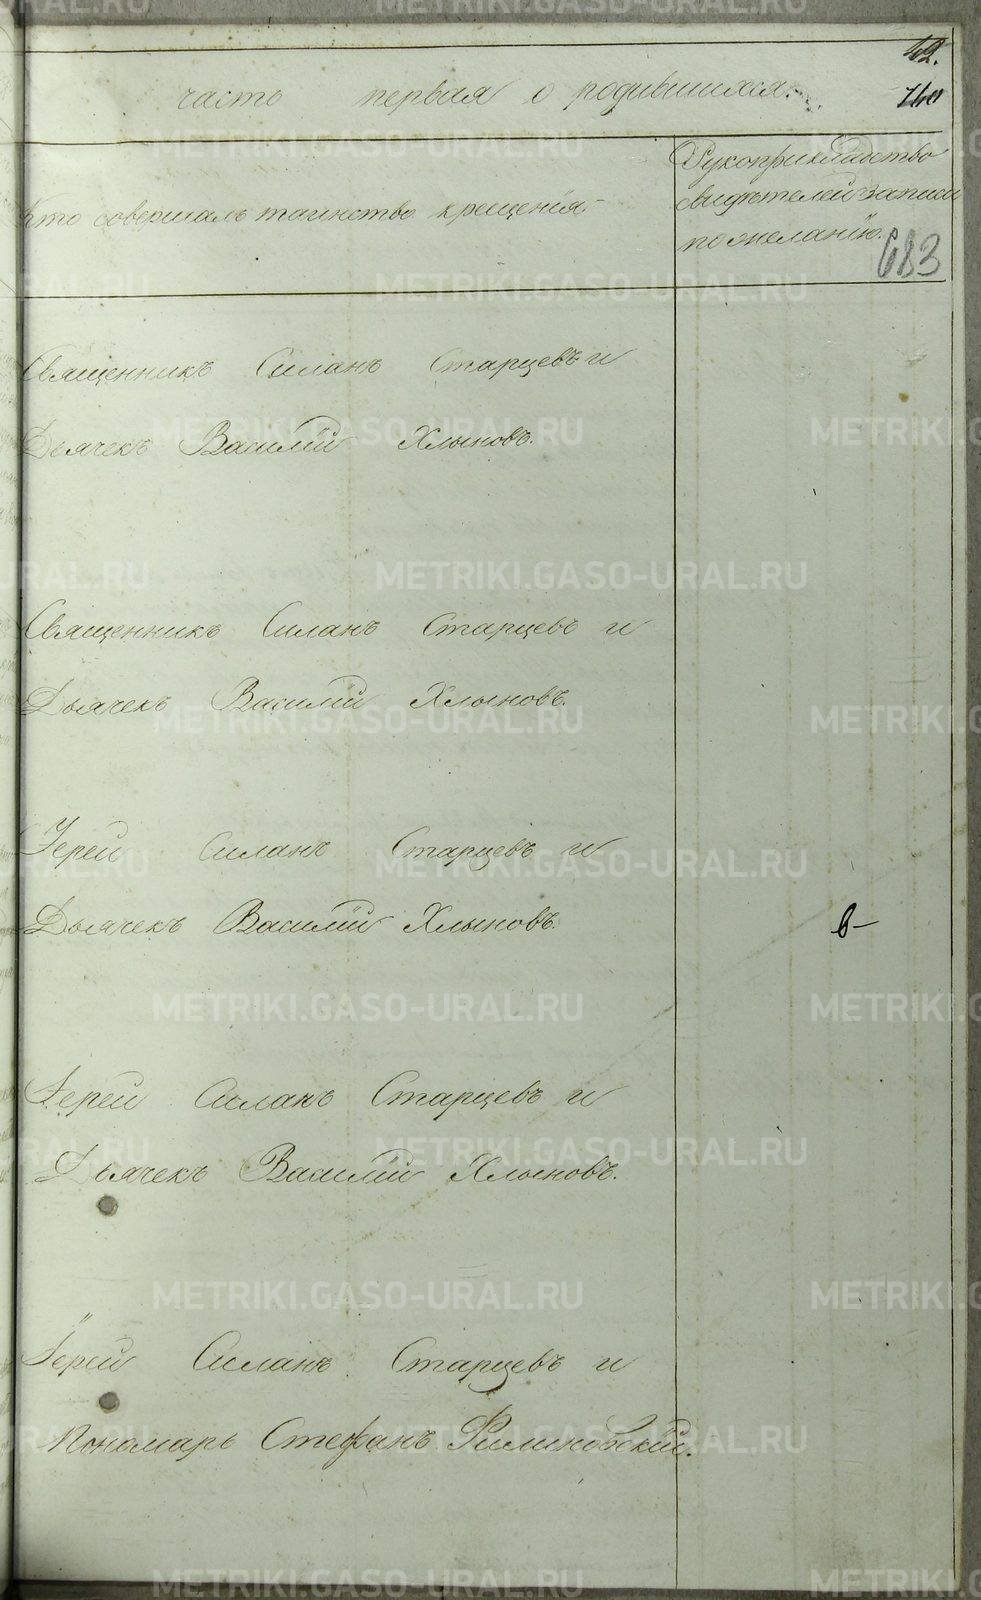 42.
часть первая о родившихся.
Кто совершалъ таинство крещенія
Рукоприкладство
свидѣтелей записи
по желанію.
683
Священникъ Силанъ Старцевъ и
Дьячекъ Василій Хлыновъ.
Священникъ Силанъ Старцевъ и
Дьячекъ Василій Хлыновъ.
Іерей Силанъ Старцевъ и
Дьячекъ Василій Хлыновъ.
Іерей Силанъ Старцевъ и
Дьячекъ Василій Хлыновъ.
Іерей Силанъ Старцевъ и
Пономарь Стефанъ
METRIKI.GASO-URAL.RU